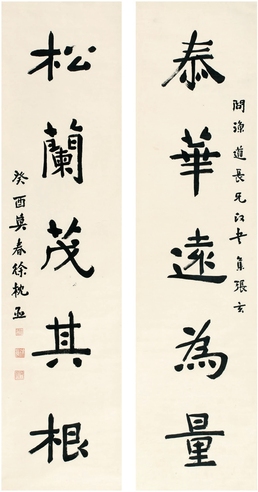 泰華遠為量
問漁道長兄正 集張玄
松蘭茂其根
癸酉莫春徐枕亞